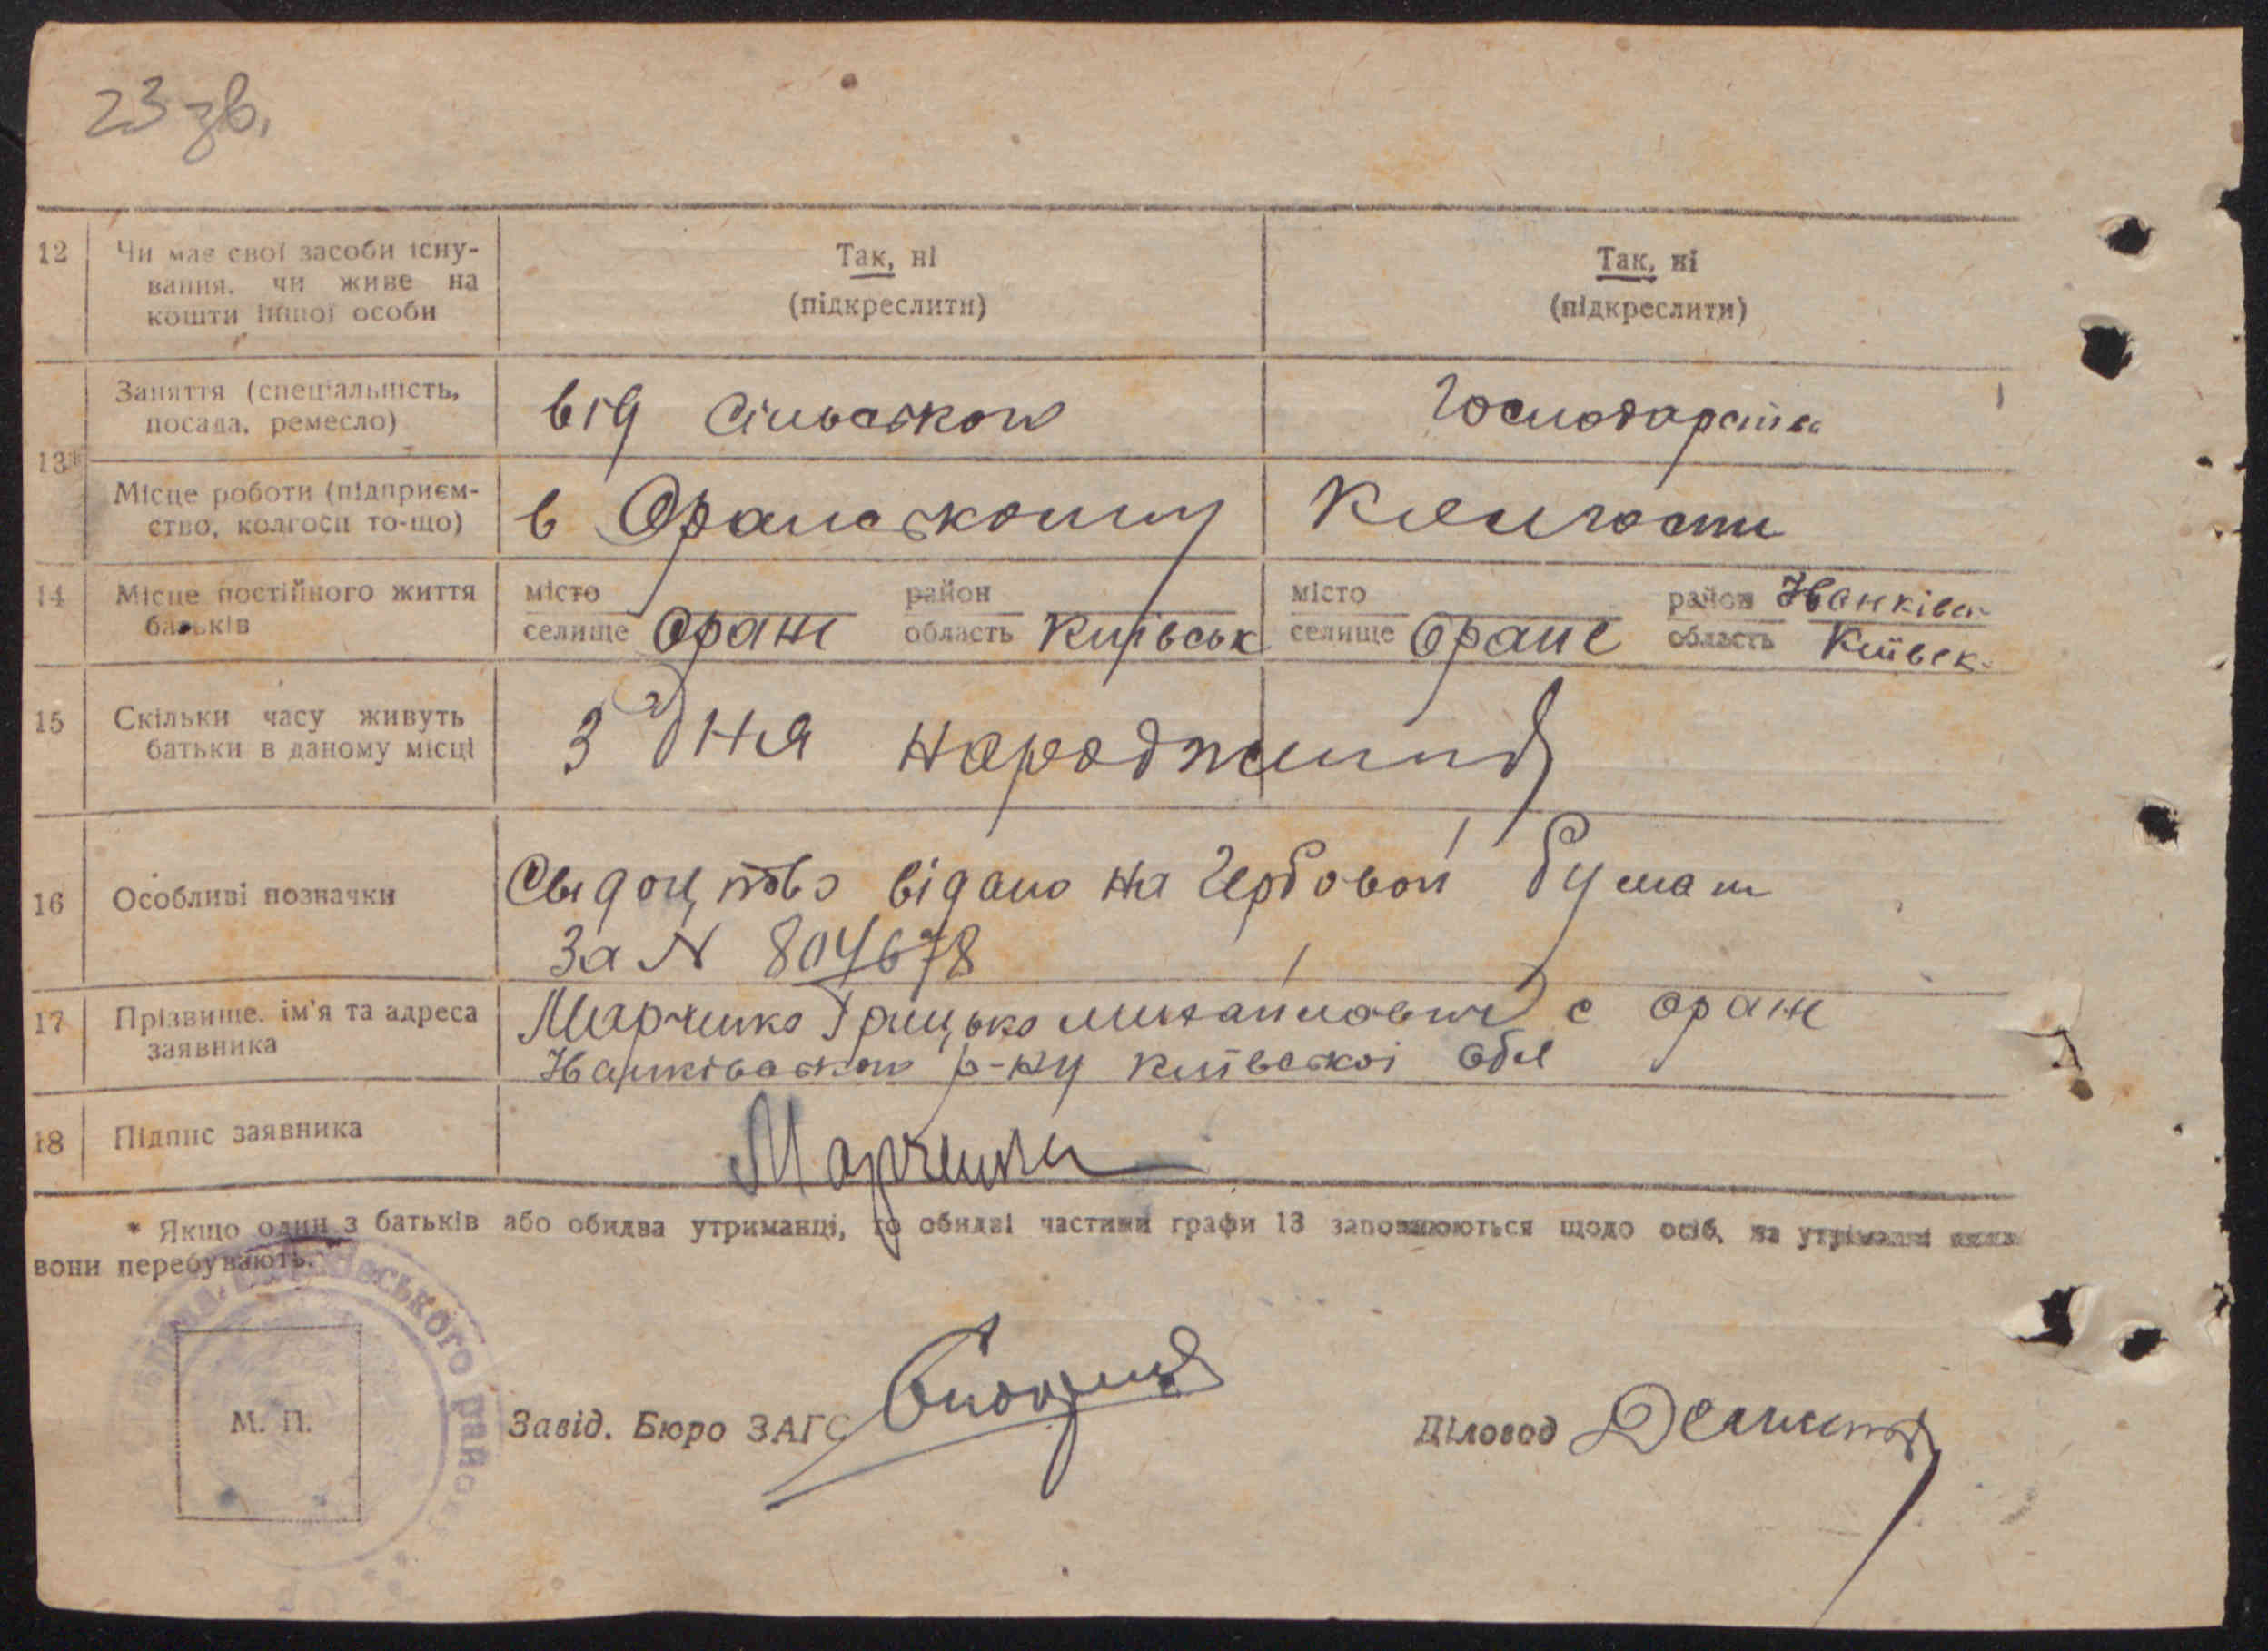 23 зв.
12 Чи має свої засоби існу- Так, ні Так, ні
вання, чи живе на (підкреслити) (підкреслити)
кошти іншої особи
13* Заняття (спеціальність, від Сільськог Господарства
посада, ремесло)
Місце роботи (підприєм- в Оранському
ство, колгосп то-що)
14 Місце постійного життя місто район місто район Іванківс
батьків селище Оране область Київськ селище Оране область Київск
15 Скільки часу живуть з дня народження
батьки в даному місці
16 Особливі позначки Свидоцтво відано на Гербовой бумаг
За N 804678
17 Прізвище, ім'я та адреса Марченко Грицько Михайлович с Оране
заявника Іванківськог р-ну Київскоі обл
18 Підпис заявника Марченко
* Якщо один з батьків або обидва утриманці, то обидві частини графи 13 заповнюються щодо осіб, на утриманні яких
вони перебувають.
ського райо
М. П. Завід. Бюро ЗАГС Діловод